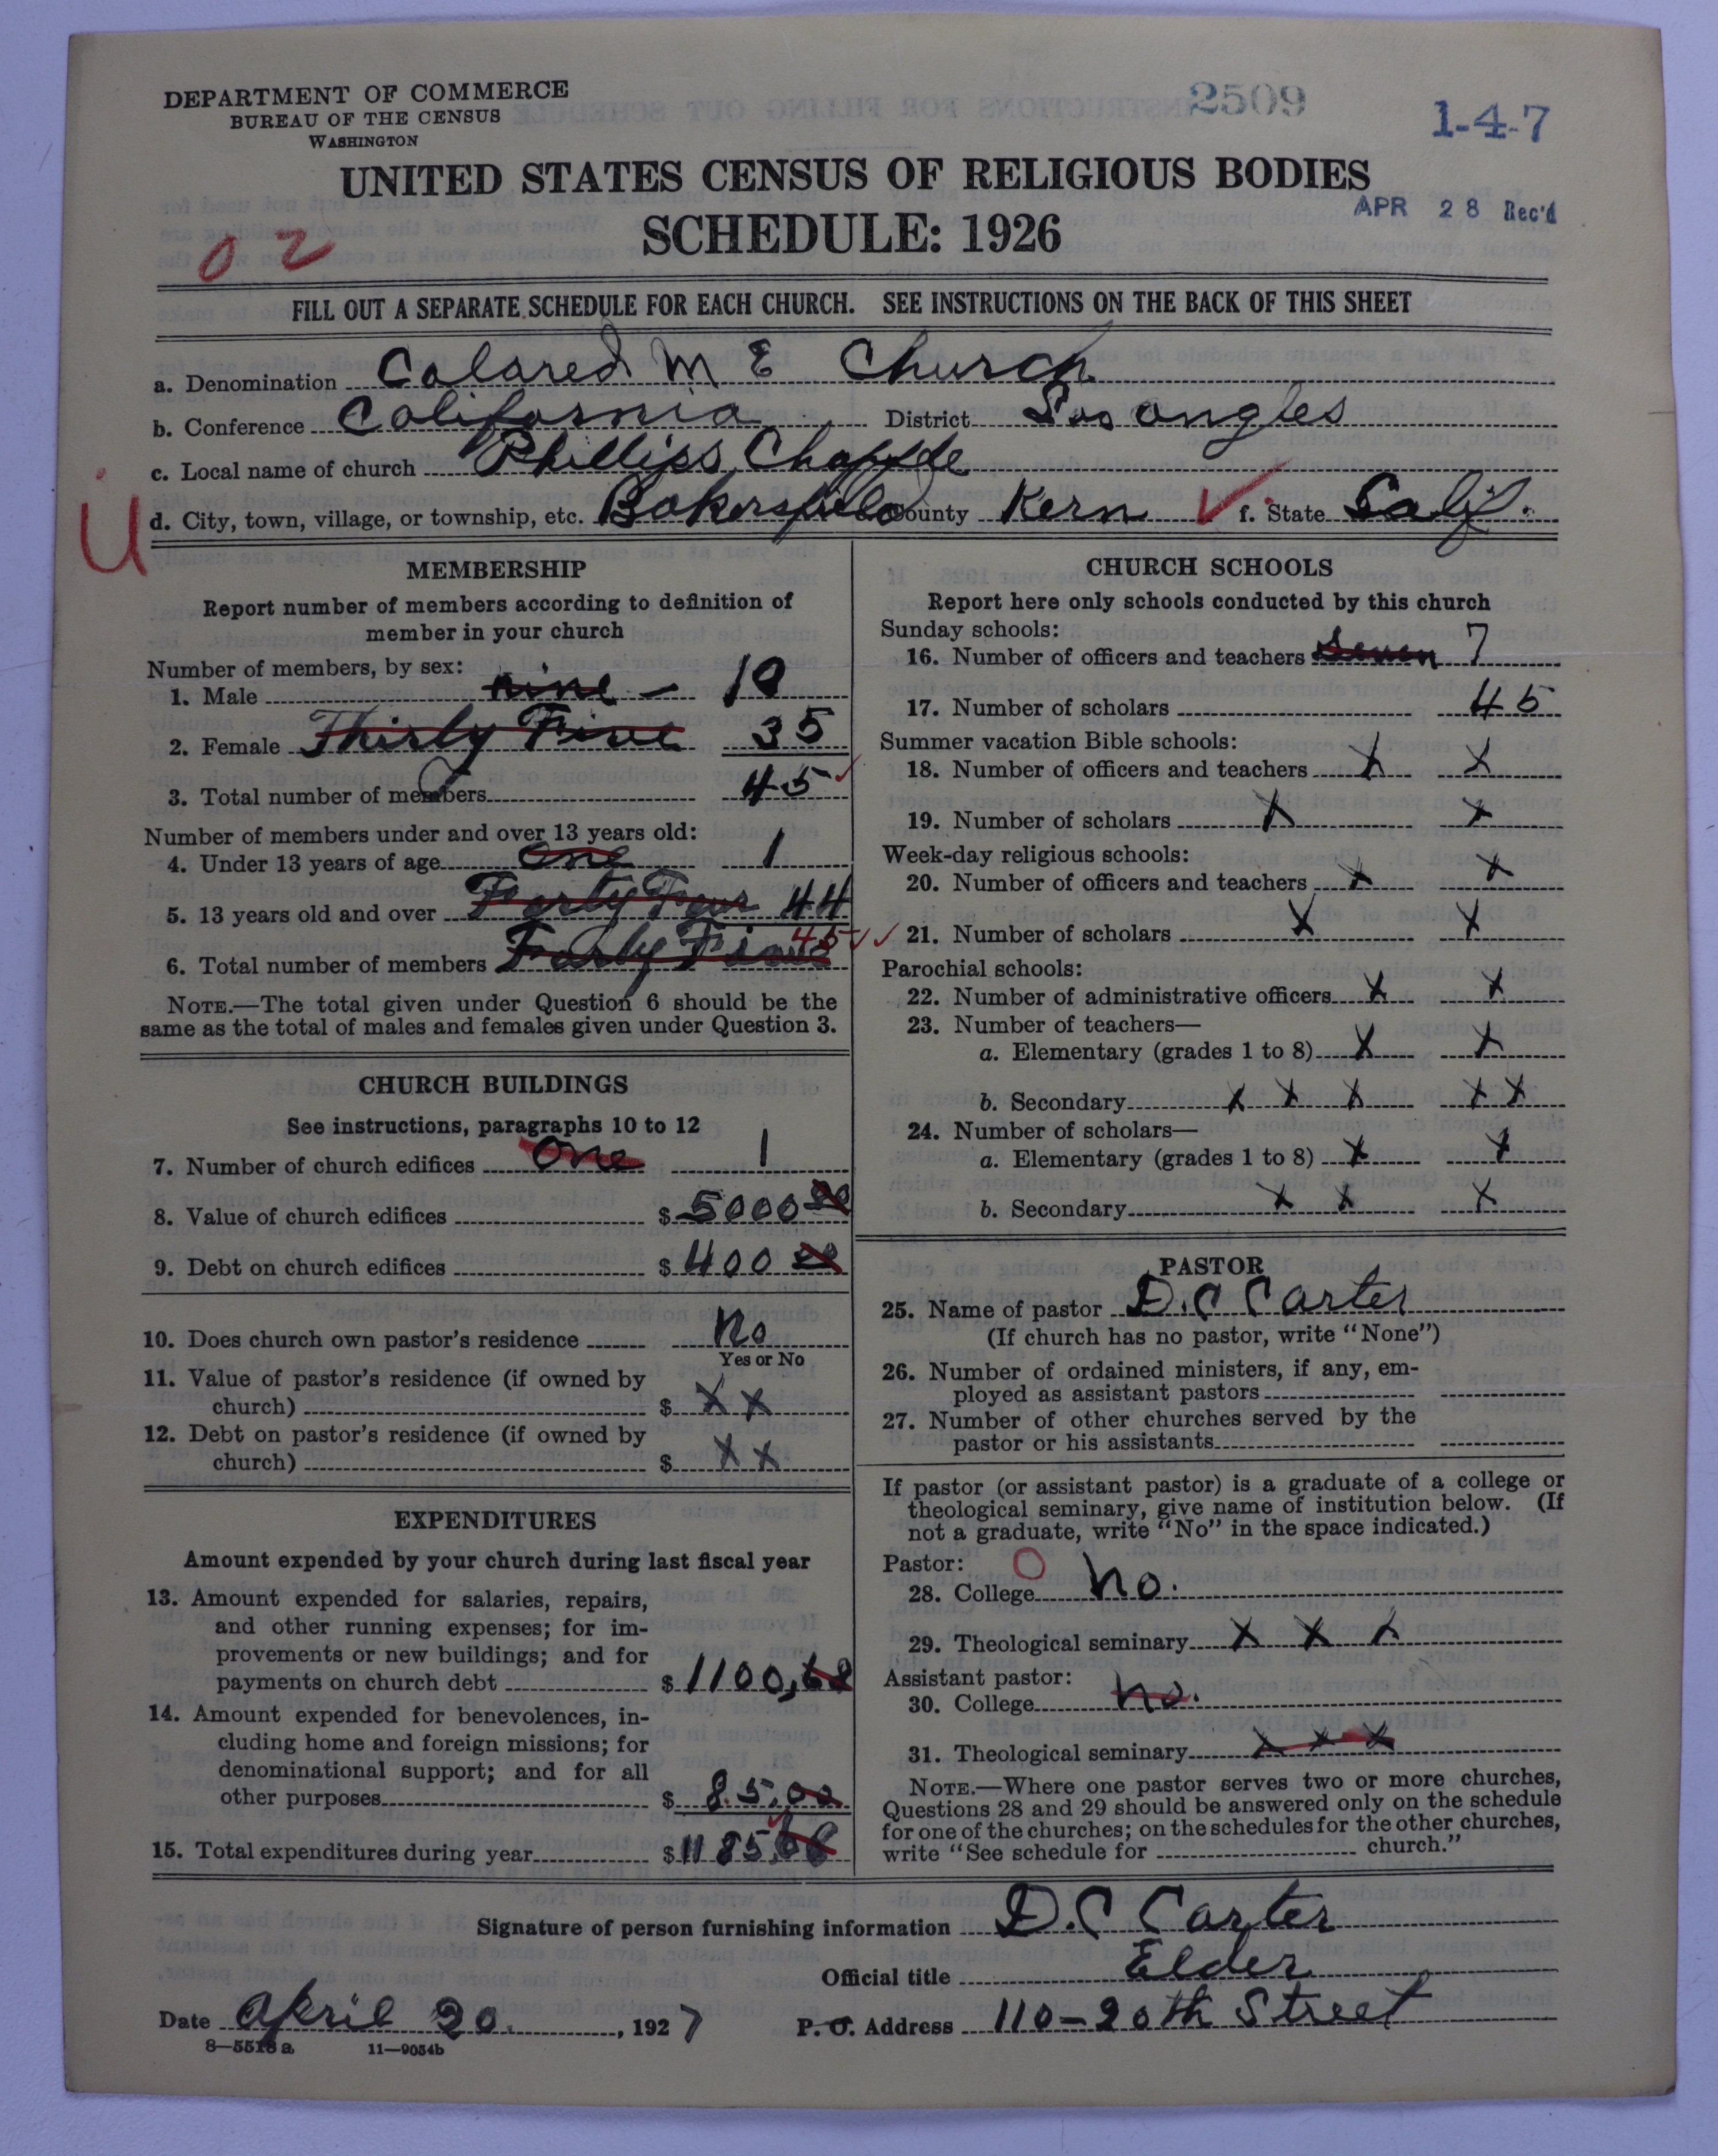 DEPARTMENT OF COMMERCE
BUREAU OF THE CENSUS
WASHINGTON
2509
1-4-7
UNITED STATES CENSUS OF RELIGIOUS BODIES
SCHEDULE: 1926
APR 28 Rec'd
02
FILL OUT A SEPARATE SCHEDULE FOR EACH CHURCH. SEE INSTRUCTIONS ON THE BACK OF THIS SHEET
a. Denomination Colored M E Church
b. Conference California District Los Angles
c. Local name of church Phillips Chapple
U
d. City, town, village, or township, etc. Bakersfield County Kern f. State Calif.
MEMBERSHIP
Report number of members according to definition of
member in your church
Number of members, by sex:
1. Male nine – 10
2. Female Thirty Five 35
3. Total number of members 45
Number of members under and over 13 years old:
4. Under 13 years of age One 1
5. 13 years old and over Forty Four 44
6. Total number of members Forty Five 45
NOTE.—The total given under Question 6 should be the
same as the total of males and females given under Question 3.
CHURCH BUILDINGS
See instructions, paragraphs 10 to 12
7. Number of church edifices One 1
8. Value of church edifices $ 5000 00
9. Debt on church edifices $ 400 00
10. Does church own pastor's residence No
Yes or No
11. Value of pastor's residence (if owned by
church) $ X X
12. Debt on pastor's residence (if owned by
church) $ X X
EXPENDITURES
Amount expended by your church during last fiscal year
13. Amount expended for salaries, repairs,
and other running expenses; for im-
provements or new buildings; and for
payments on church debt $ 1100,68
14. Amount expended for benevolences, in-
cluding home and foreign missions; for
denominational support; and for all
other purposes $ 85,00
15. Total expenditures during year $ 1185,68
CHURCH SCHOOLS
Report here only schools conducted by this church
Sunday schools:
16. Number of officers and teachers Seven 7
17. Number of scholars 45
Summer vacation Bible schools:
18. Number of officers and teachers X X
19. Number of scholars X X
Week-day religious schools:
20. Number of officers and teachers X X
21. Number of scholars X X
Parochial schools:
22. Number of administrative officers X X
23. Number of teachers—
a. Elementary (grades 1 to 8) X X
b. Secondary X X X X X
24. Number of scholars—
a. Elementary (grades 1 to 8) X X
b. Secondary X X X
PASTOR
25. Name of pastor D. C Carter
(If church has no pastor, write "None")
26. Number of ordained ministers, if any, em-
ployed as assistant pastors
27. Number of other churches served by the
pastor or his assistants
If pastor (or assistant pastor) is a graduate of a college or
theological seminary, give name of institution below. (If
not a graduate, write "No" in the space indicated.)
Pastor: O
28. College No.
29. Theological seminary X X X
Assistant pastor:
30. College No.
31. Theological seminary X X X
NOTE.—Where one pastor serves two or more churches,
Questions 28 and 29 should be answered only on the schedule
for one of the churches; on the schedules for the other churches,
write "See schedule for church."
Signature of person furnishing information D. C Carter
Official title Elder
Date April 20, 1927 P. O. Address 110-20th Street
8—5518 a 11—9054b